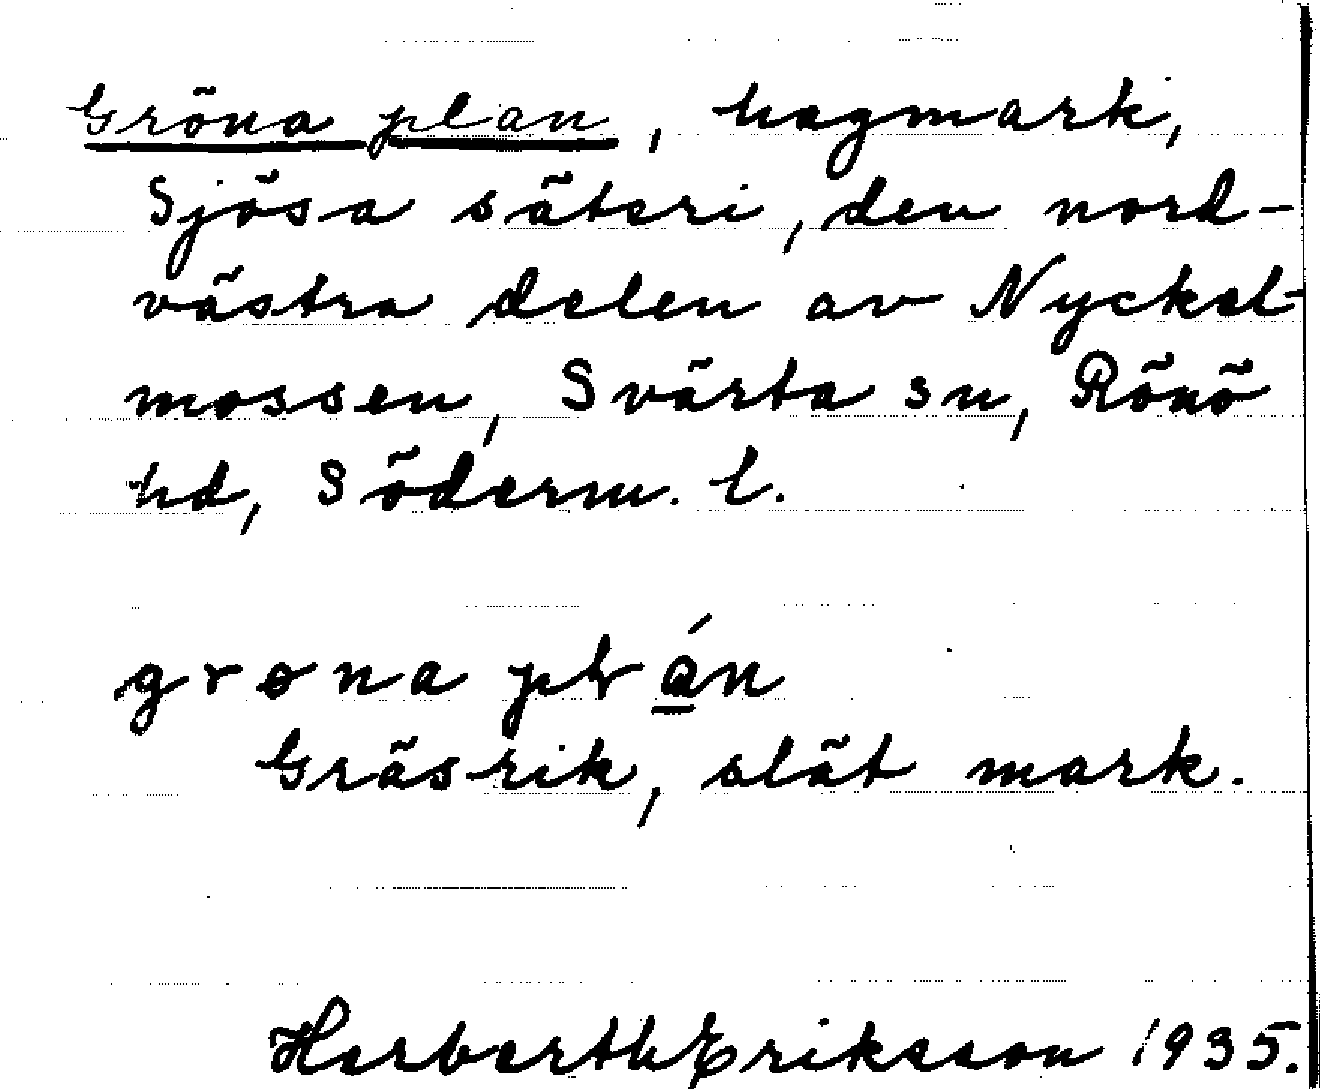 Gröna plan, hagmark,
Sjösa säteri, den nord-
västra delen av Nyckel-
mossen, Svärta sn, Rönö
hd, Söderm. l.
grøna plán
Gräsrik, slät mark.
Herberth Eriksson 1935.